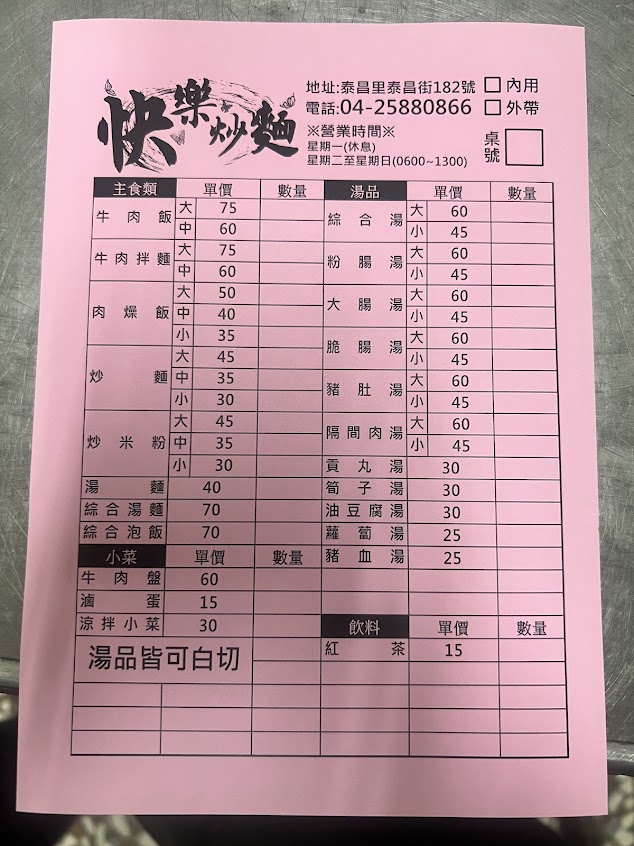 快樂炒麵
地址:泰昌里泰昌街182號 □ 內用
電話:04-25880866 □ 外帶
※營業時間※
星期一(休息)
星期二至星期日(0600~1300)
桌號
主食類 單價 數量
牛肉飯 大 75
中 60
牛肉拌麵 大 75
中 60
肉燥飯 大 50
中 40
小 35
炒麵 大 45
中 35
小 30
炒米粉 大 45
中 35
小 30
湯麵 40
綜合湯麵 70
綜合泡飯 70
小菜 單價 數量
牛肉盤 60
滷蛋 15
涼拌小菜 30
湯品皆可白切
湯品 單價 數量
綜合湯 大 60
小 45
粉腸湯 大 60
小 45
大腸湯 大 60
小 45
脆腸湯 大 60
小 45
豬肚湯 大 60
小 45
隔間肉湯 大 60
小 45
貢丸湯 30
筍子湯 30
油豆腐湯 30
蘿蔔湯 25
豬血湯 25
飲料 單價 數量
紅茶 15